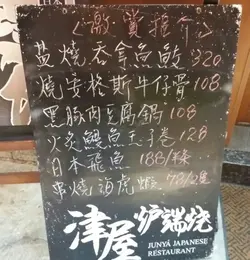 ＜激賞推介＞
盐燒吞拿魚鮫 320
燒安格斯牛仔骨 108
黑豚肉豆腐鍋 108
火炙鰻魚玉子卷 128
日本飛魚 188/條
串燒海虎蝦 78/2隻
津屋 炉端烧
JUNYA JAPANESE
RESTAURANT